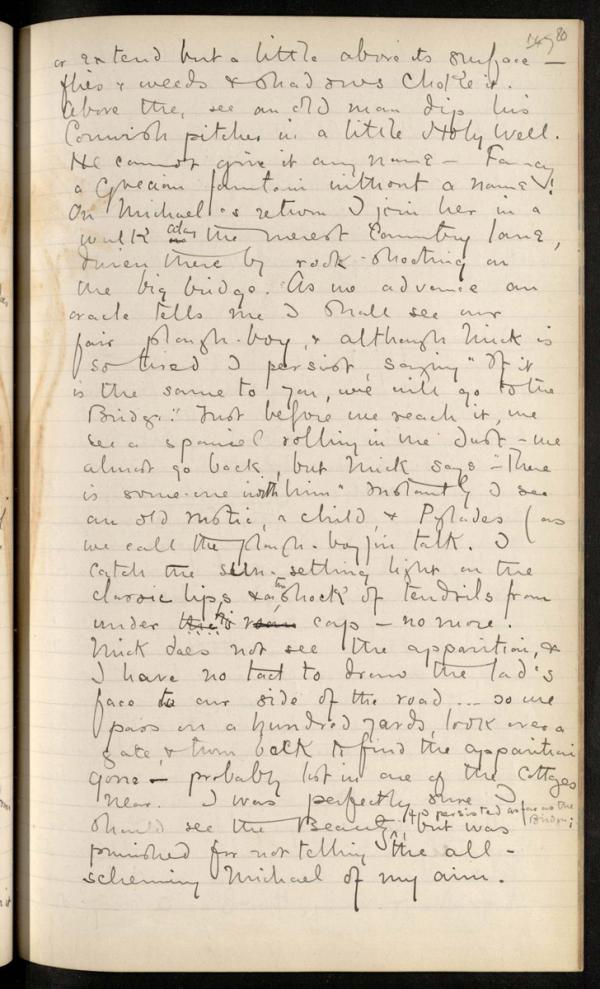 80
or extend but a little above its surface —
flies & weeds & shadows choke it.
Above the, see an old man dip his
Cornish pitcher in a little Holy Well.
He cannot give it any name — Fancy
a Grecian fountain without a name!
On Michael's return I join her in a
walk along the merest Country lane,
driven there by rock-shooting on
the big bridge. As we advance an
oracle tells me I shall see our
fair plough-boy, & although Mick is
so tired I persist, saying "If it
is the same to you, we will go to the
Bridge." Just before we reach it, we
see a spaniel rolling in the dust — we
almost go back, but Mick says — "There
is some-one with him" Instantly I see
an old rustic, a child, & Pylades (as
we call the plough-boy) in talk. I
catch the sun-setting light on the
classic lips & on the 'shock' of tendrils from
under the cap — no more.
Mick does not see the apparition, &
I have no tact to draw the lad's
face to our side of the road ... so we
pass on a hundred yards, look over a
gate, & turn back to find the apparition
gone — probably lost in one of the Cottages
near. I was perfectly sure I
should see the Beauty, if I persisted as far as the Bridge; but was
punished for not telling the all-
scheming Michael of my aim.